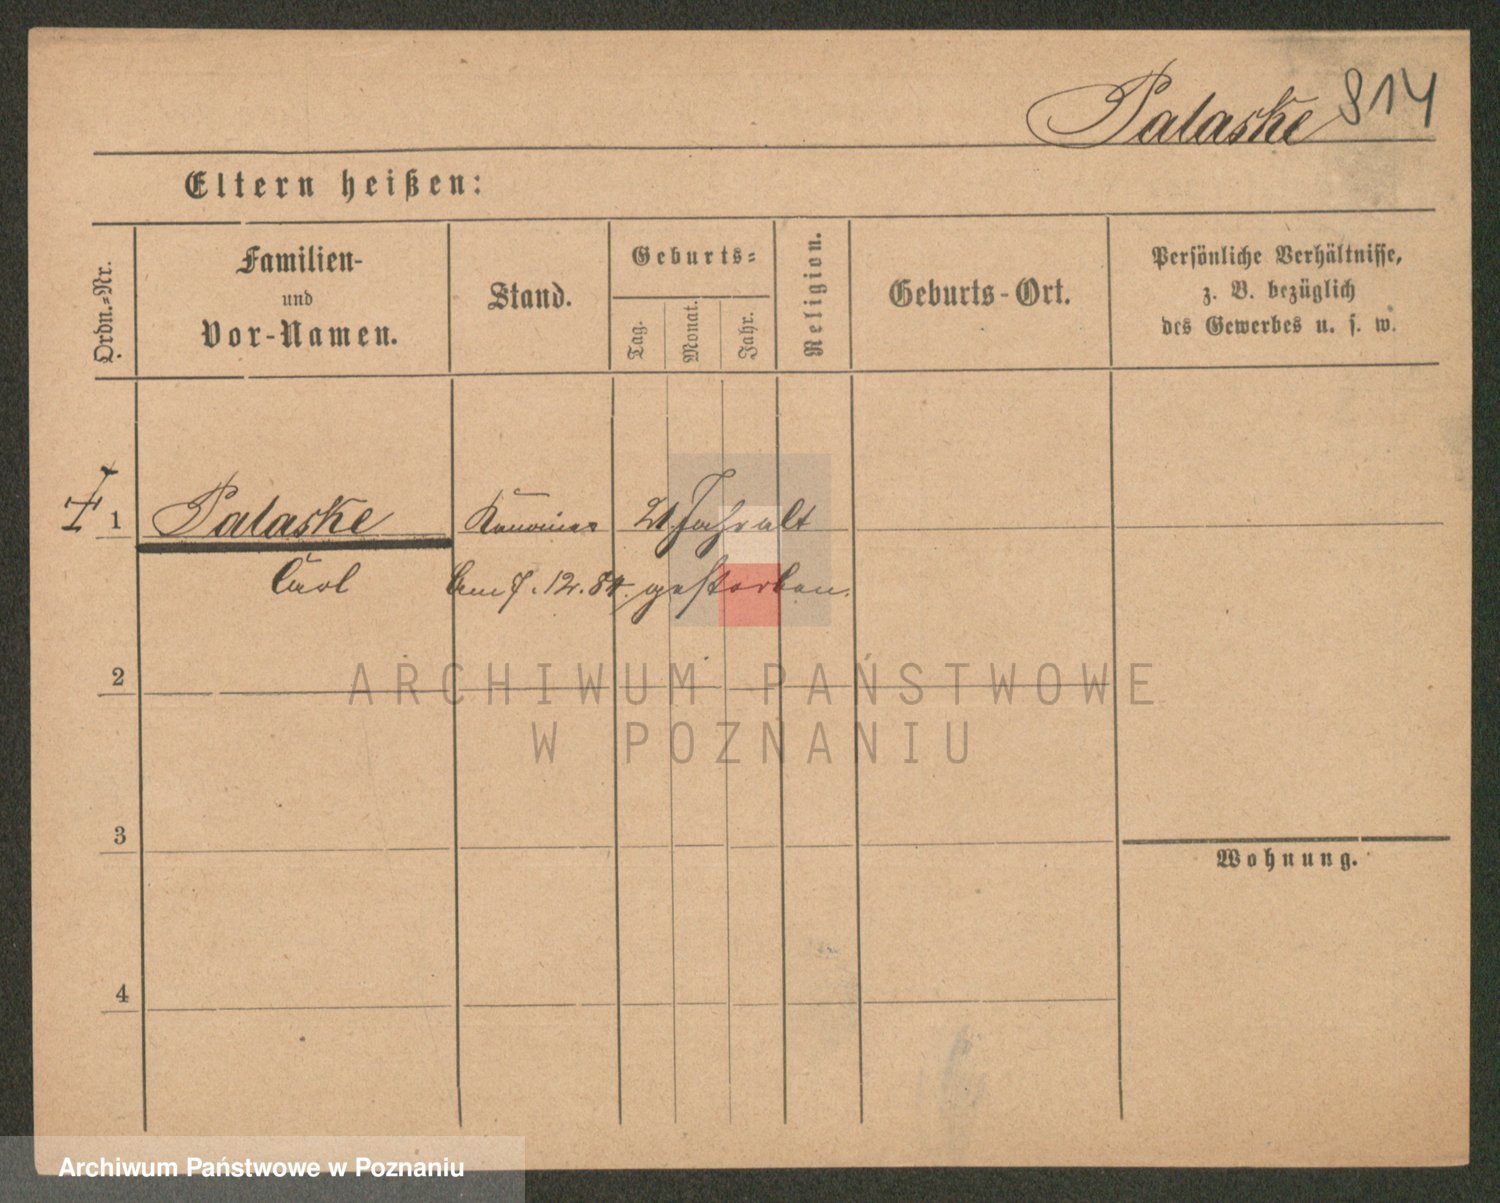 Palaske 814
Eltern heißen:
Ordn.-Nr.
Familien-
und
Vor-Namen.
Stand.
Geburts-
Tag.
Monat.
Jahr.
Religion.
Geburts-Ort.
Persönliche Verhältnisse,
z. B. bezüglich
des Gewerbes u. s. w.
1 Palaske Kanonier 21 Jahr alt
Carl Am 7. 12. 84. gestorben.
2
ARCHIWUM PAŃSTWOWE
W POZNANIU
3
Wohnung.
4
Archiwum Państwowe w Poznaniu